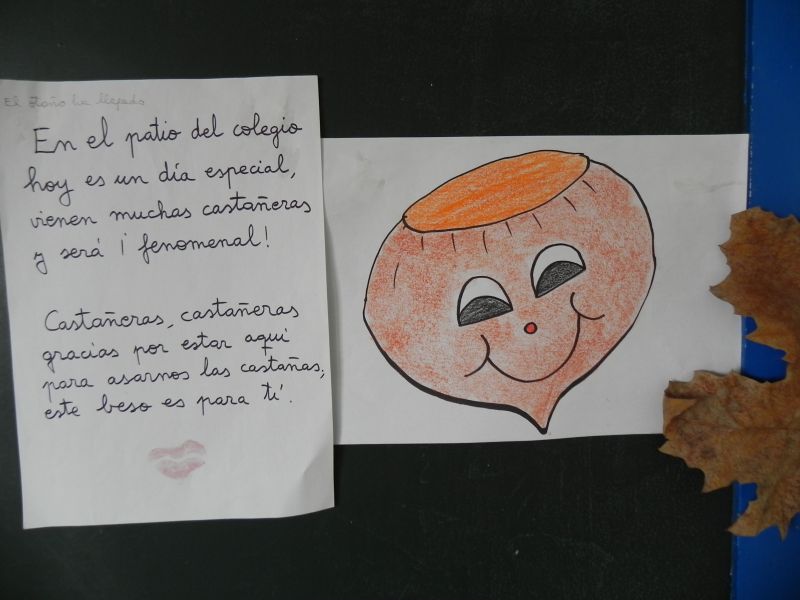 El otoño ha llegado
En el patio del colegio
hoy es un día especial,
vienen muchas castañeras
y será ¡ fenomenal!
Castañeras, castañeras
gracias por estar aquí
para asarnos las castañas;
este beso es para tí.